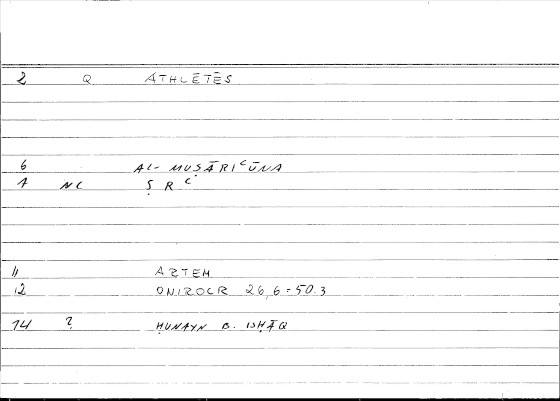 2 Q ATHLĒTĒS
6 AL-MUṢĀRIʿŪNA
7 NC Ṣ R ʿ
11 ARTEM
12 ONIROCR 26,6 = 50.3
14 ? ḤUNAYN B. ISḤĀQ